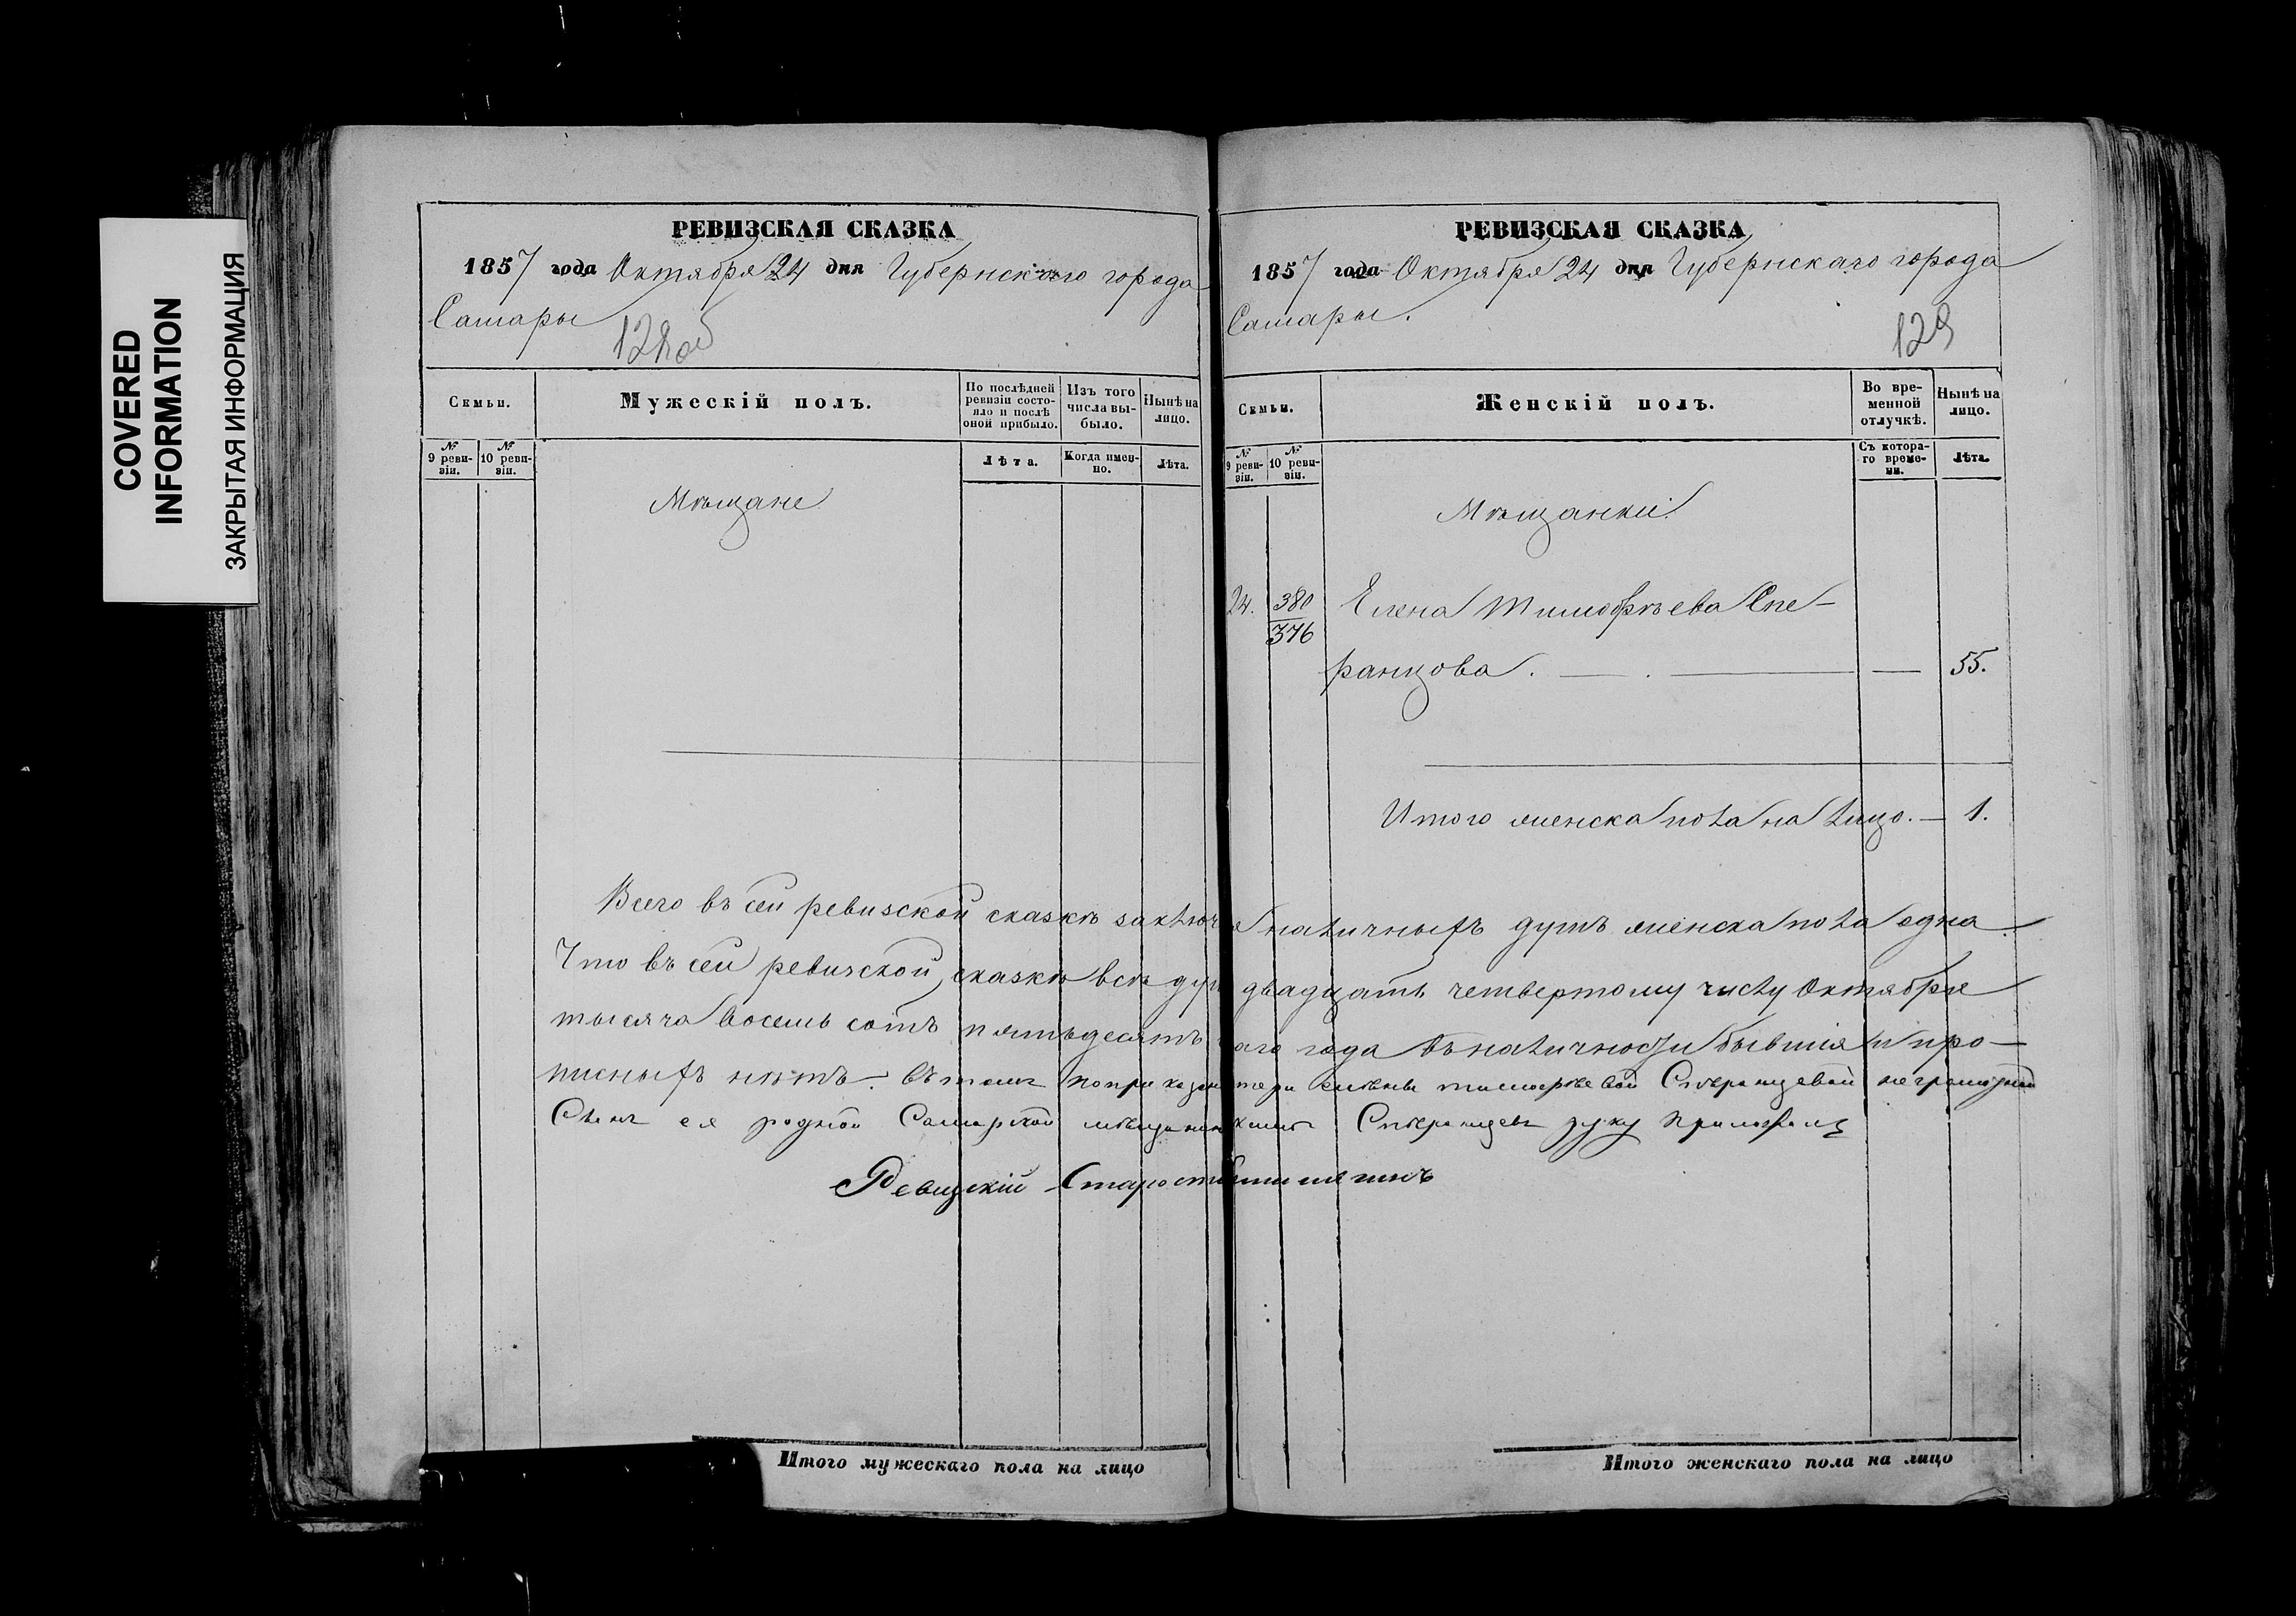 COVERED
INFORMATION
ЗАКРЫТАЯ ИНФОРМАЦИЯ
РЕВИЗСКАЯ СКАЗКА
1857 года Октября 24 дня Губернскаго города
Самары
128об
Семьи.
Мужескій полъ.
По послѣдней ревизіи состояло и послѣ оной прибыло.
Изъ того числа выбыло.
Нынѣ на лицо.
№ 9 ревизіи.
№ 10 ревизіи.
Лѣта.
Когда именно.
Лѣта.
Мѣщане
РЕВИЗСКАЯ СКАЗКА
1857 года Октября 24 дня Губернскаго города
Самары.
129
Семьи.
Женскій полъ.
Во временной отлучкѣ.
Нынѣ на лицо.
№ 9 ревизіи.
№ 10 ревизіи.
Съ котораго времени.
Лѣта.
Мѣщанки
24. 380 Елена Тимофѣева Спе-
376
ранцова. — . — — 55.
Итого женска пола на лицо. — 1.
Всего въ сей ревизской сказкѣ заключ наличныхъ душъ женска пола одна.
Что въ сей ревизской сказкѣ всѣ двадцать четвертому числу Октября
тысяча восемь сотъ пятьдесятъ года въ наличности бывшія и про-
писныхъ нѣтъ. въ томъ по приказан Елены Тимофѣевой Сперанцевой неграмотной
Сынъ ея родной Самарской мѣщанин Сперанцевъ руку приложилъ
Ревизскій Староста
Итого мужескаго пола на лицо
Итого женскаго пола на лицо